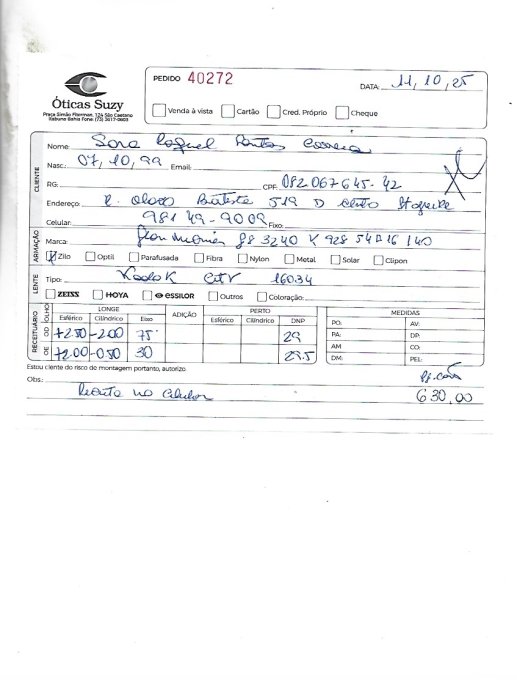 PEDIDO 40272
DATA: 11, 10, 25
Óticas Suzy
Praça Simão Fiterman, 124 São Caetano
Itabuna Bahia Fone: (73) 3617-0603
Venda à vista Cartão Cred. Próprio Cheque
CLIENTE
Nome: Raquel
Nasc.: 07, 10, 99 Email:
RG: CPF: 082.067645-42
Endereço: R. Batista 519 D
Celular: 98149-9009 Fixo:
ARMAÇÃO
Marca: J8 3240 K 928 54 16 140
Zilo Optil Parafusada Fibra Nylon Metal Solar Clipon
LENTE
Tipo: Kodak 16034
ZEISS HOYA essilor Outros Coloração:
RECEITUÁRIO
OLHO LONGE ADIÇÃO PERTO MEDIDAS
Esférico Cilíndrico Eixo Esférico Cilíndrico DNP PO: AV:
OD +2.50 -2.00 75° 29 PA: DP:
OE +2.00 -0.50 30 29.5 AM CO:
DM: PEL:
Estou ciente do risco de montagem portanto, autorizo
Obs.: Receita no celular 630,00